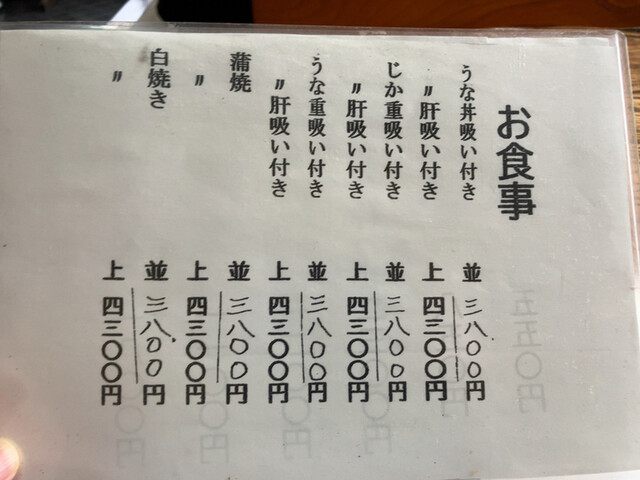 お食事
うな丼吸い付き 並 三八〇〇円
〃肝吸い付き 上 四三〇〇円
じか重吸い付き 並 三八〇〇円
〃肝吸い付き 上 四三〇〇円
うな重吸い付き 並 三八〇〇円
〃肝吸い付き 上 四三〇〇円
蒲焼 並 三八〇〇円
〃 上 四三〇〇円
白焼き 並 三八〇〇円
〃 上 四三〇〇円